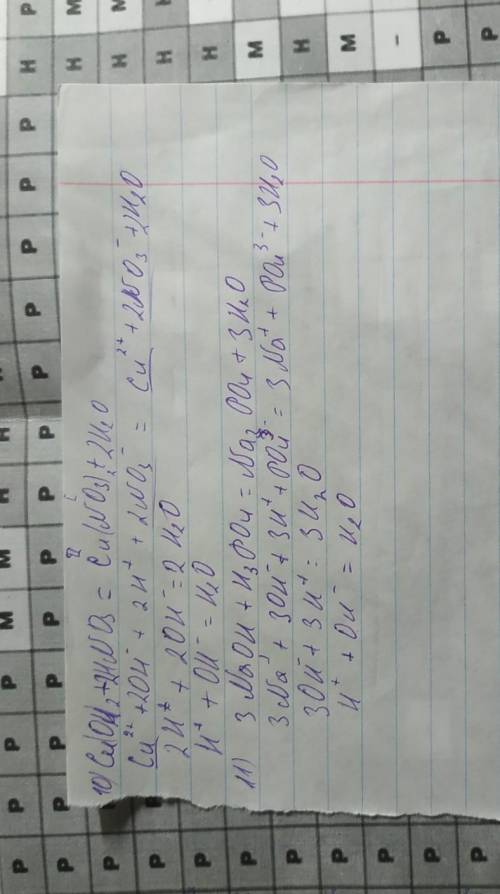 10) Cu(OH)₂+2HNO₃ = Cu(NO₃)₂+2H₂O
II I
Cu²⁺+2OH⁻+2H⁺+2NO₃⁻ = Cu²⁺+2NO₃⁻+2H₂O
2H⁺+2OH⁻=2H₂O
H⁺+OH⁻=H₂O
11) 3NaOH+H₃PO₄=Na₃PO₄+3H₂O
3Na⁺+3OH⁻+3H⁺+PO₄³⁻=3Na⁺+PO₄³⁻+3H₂O
3OH⁻+3H⁺=3H₂O
H⁺+OH⁻=H₂O